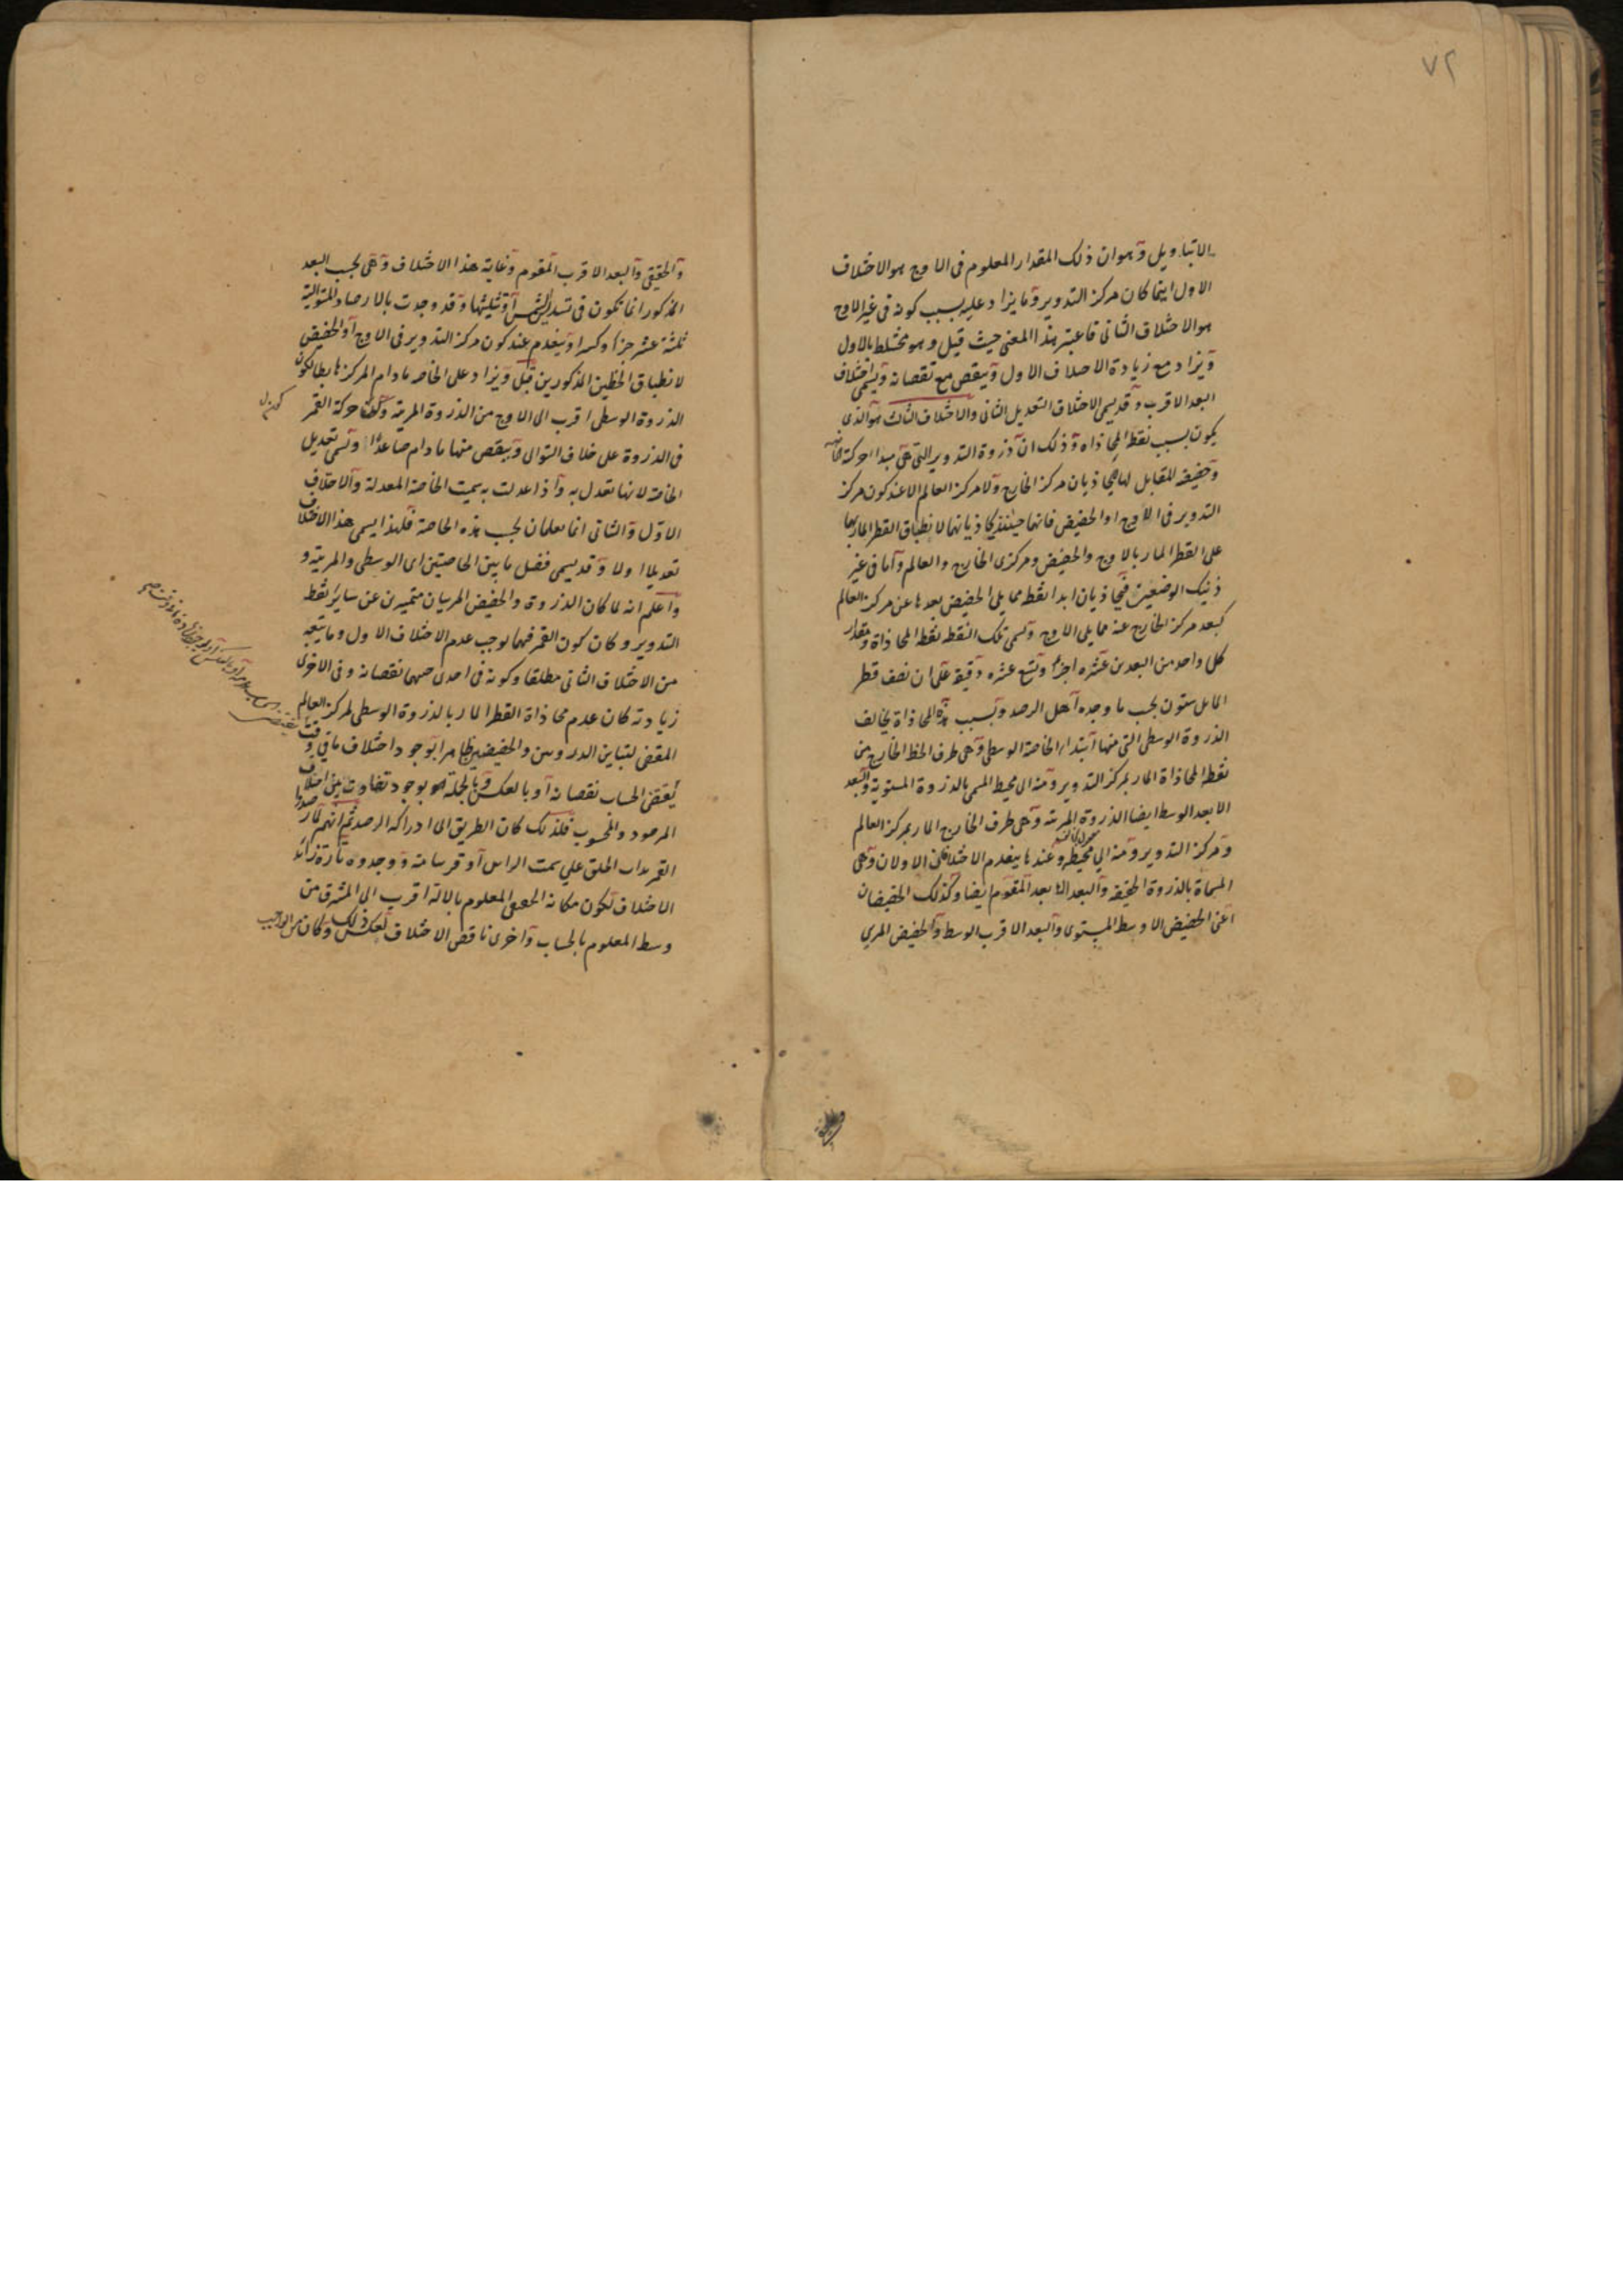 ٧٢
الا بتاويل وهو ان ذلك المقدار المعلوم فى الاوج هو الاختلاف
الاول اينما كان مركز التدوير وما يزاد عليه بسبب كونه فى غير الاوج
هو الاختلاف الثانى فاعتبر هذا المعنى حيث قيل وهو مختلط بالاول
ويزاد مع زيادة الاختلاف الاول وينقص مع نقصانه ويسمى اختلاف
البعد الاقرب وقد يسمى الاختلاف التعديل الثانى والاختلاف الثالث هو الذى
يكون بسبب نقطة المحاذاه وذلك ان ذروة التدوير التى هى مبدا حركة
وحضيضه المقابل لها يحاذيان مركز الخارج ولا مركز العالم الا عند كون مركز
التدوير فى الاوج او الحضيض فانهما حينئذ يحاذيانهما لانطباق القطر المار بهما
على القطر المار بالاوج والحضيض ومركزى الخارج والعالم واما فى غير
ذينك الوضعين فيحاذيان ابدا نقطة مما يلى الحضيض بعدها عن مركز العالم
كبعد مركز الخارج عنه مما يلى الاوج وتسمى تلك النقطه نقطة المحاذاة ومقدار
كل واحد من البعدين عشره اجزاء وتسع عشره دقيقه على ان نصف قطر
المايل ستون بحسب ما وجده اهل الرصد وبسبب هذه المحاذاة يخالف
الذروة الوسطى التى منها ابتداء الخاصة الوسطى وهى طرف الخط الخارج من
نقطة المحاذاة المار بمركز التدوير ومنه الى محيط المسمى بالذروة المستوية والبعد
الابعد الوسط ايضا الذروة المرئية وهى طرف الخارج المار بمركز العالم
ومركز التدوير ومنه الى محيطه وعندها ينعدم الاختلافان الاولان وهى
المسماة بالذروة الحقيقه والبعد الابعد المقوم ايضا وكذلك الحضيضان
اعنى الحضيض الاوسط المستوى والبعد الاقرب الوسط والحضيض المرى
والحقيقى والبعد الاقرب المقوم وغاية هذا الاختلاف وهى بحسب البعد
المذكور انما تكون فى تسديس الشمس او تثليثها وقد وجدت بالارصاد المتوالية
ثلثة عشر جزءا وكسرا وينعدم عند كون مركز التدوير فى الاوج او الحضيض
لانطباق الخطين المذكورين قبل ويزاد على الخاصة ما دام المركز هابطا لكون
الذروة الوسطى اقرب الى الاوج من الذروة المرئية وكون حركة القمر
فى الذروة على خلاف التوالى وينقص منها ما دام صاعدا وتسمى تعديل
الخاصة لانها تعدل به واذا عدلت به سميت الخاصة المعدلة والاختلاف
الاول والثانى انما يعلمان بحسب هذه الخاصة فلهذا يسمى هذا الاختلاف
تعديلا اولا وقد يسمى فضل ما بين الخاصتين اى الوسطى والمرئية و
واعلم انه لما كان الذروة والحضيض المريان متميزين عن ساير نقط
التدوير وكان كون القمر فيهما يوجب عدم الاختلاف الاول وما يتبعه
من الاختلاف الثانى مطلقا وكونه فى احدى جهتيهما نقصانه وفى الاخرى
زيادته كان عدم محاذاة القطر المار بالذروة الوسطى لمركز العالم
المقتضى لتباين الذروتين والحضيضين ظاهرا بوجود اختلاف ما فى وقت
يقتضى الحساب نقصانه او بالعكس وبالجمله هو بوجود تفاوت بين اختلاف
المرصود والمحسوب فلذلك كان الطريق الى ادراكه الرصد ثم انهم لما رصدوا
القمر بذات الحلق على سمت الراس او قريبا منه ووجدوه تارة زائد
الاختلاف لكون مكانه الحقيقى المعلوم بالالة اقرب الى المشرق من
وسط المعلوم بالحساب واخرى ناقص الاختلاف بعكس ذلك وكان من الواجب